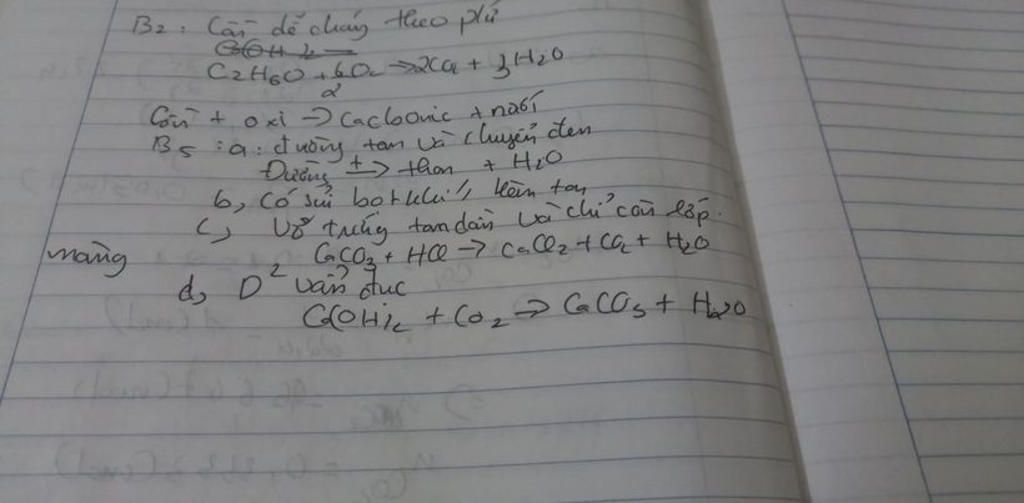 B2: Cồn dễ cháy theo ptư
C2H6O + 6O2 → 2CO2 + 3H2O
2
Cồn + oxi → cacbonic + nước
B5: a: đường tan và chuyển đen
Đường → than + H2O
b, Có sủi bọt khí,
c, Vỏ trứng tan dần và chỉ còn lớp
màng
CaCO3 + HCl → CaCl2 + CO2 + H2O
d, D² vẩn đục
Ca(OH)2 + CO2 → CaCO3 + H2O